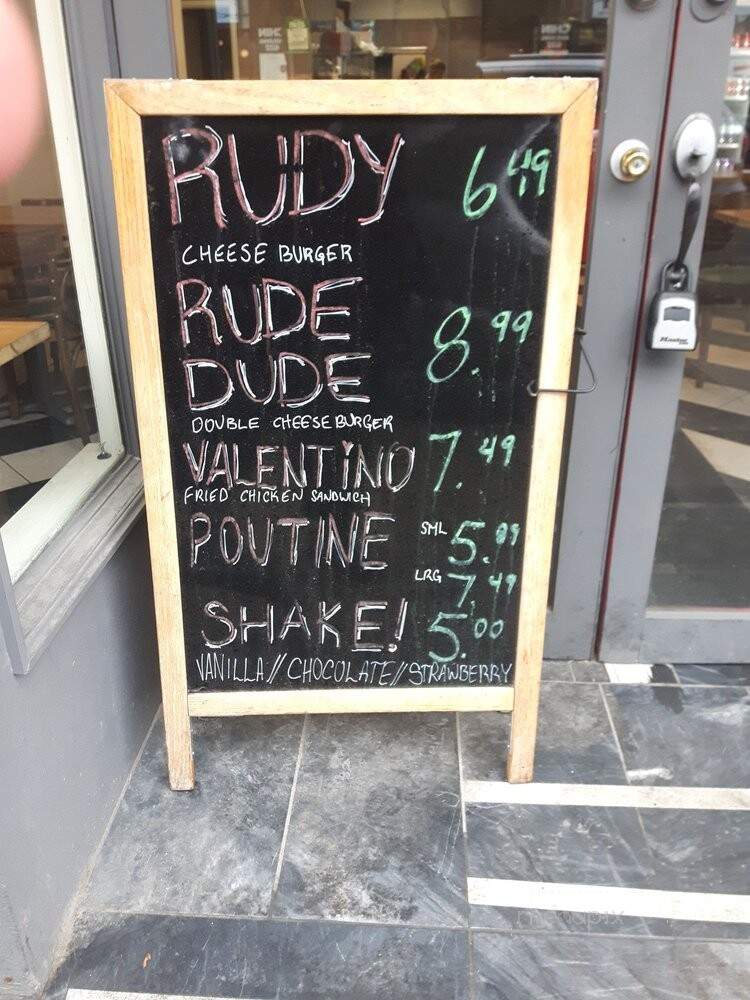 RUDY 6.49
CHEESE BURGER
RUDE
DUDE 8.99
DOUBLE CHEESEBURGER
VALENTINO 7.49
FRIED CHICKEN SANDWICH
POUTINE SML 5.99
LRG 7.49
SHAKE! 5.00
VANILLA // CHOCOLATE // STRAWBERRY
Master